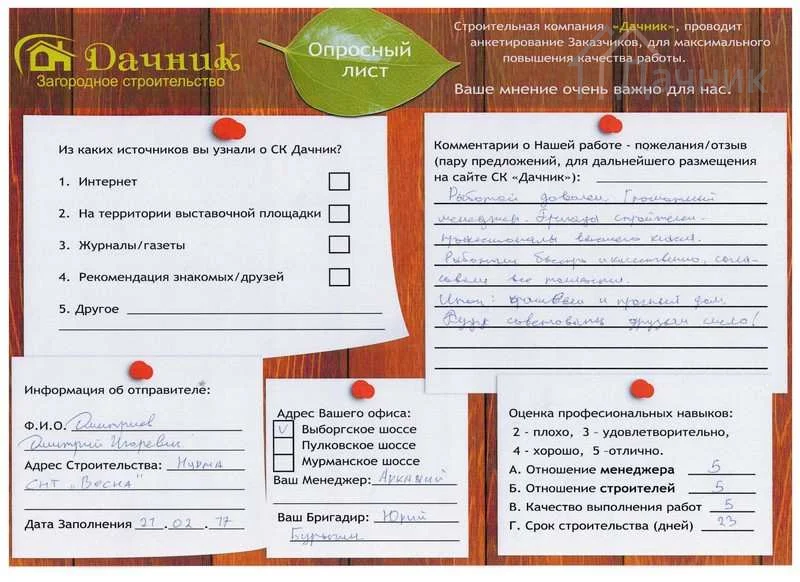 Дачник
Загородное строительство
Опросный
лист
Строительная компания «Дачник», проводит
анкетирование Заказчиков, для максимального
повышения качества работы.
Ваше мнение очень важно для нас.
Дачник
Из каких источников вы узнали о СК Дачник?
1. Интернет
2. На территории выставочной площадки
3. Журналы/газеты
4. Рекомендация знакомых/друзей
5. Другое
Комментарии о Нашей работе - пожелания/отзыв
(пару предложений, для дальнейшего размещения
на сайте СК «Дачник»):
Работой доволен. Грамотный
менеджер. Бригада строители-
профессионалы высшего класса.
Работали быстро и качественно, согла-
совали все
Итог: красивый и прочный дом.
Буду советовать друзьям смело!
Информация об отправителе:
Ф.И.О. Дмитриев
Дмитрий Игоревич
Адрес Строительства: Нурма
СНТ „Весна"
Дата Заполнения 21 . 02 . 17
Адрес Вашего офиса:
V Выборгское шоссе
Пулковское шоссе
Мурманское шоссе
Ваш Менеджер: Аркадий
Ваш Бригадир: Юрий
Оценка професиональных навыков:
2 - плохо, 3 - удовлетворительно,
4 - хорошо, 5 -отлично.
А. Отношение менеджера 5
Б. Отношение строителей 5
В. Качество выполнения работ 5
Г. Срок строительства (дней) 23